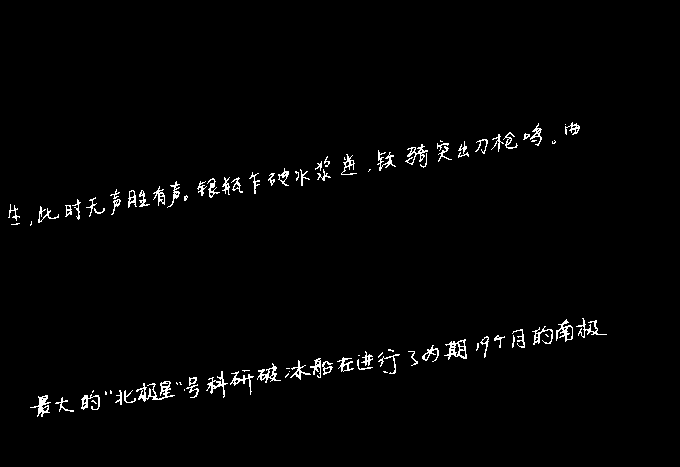 生,此时无声胜有声。银瓶乍破水浆迸,铁骑突出刀枪鸣。曲
最大的"北极星"号科研破冰船在进行了为期19个月的南极